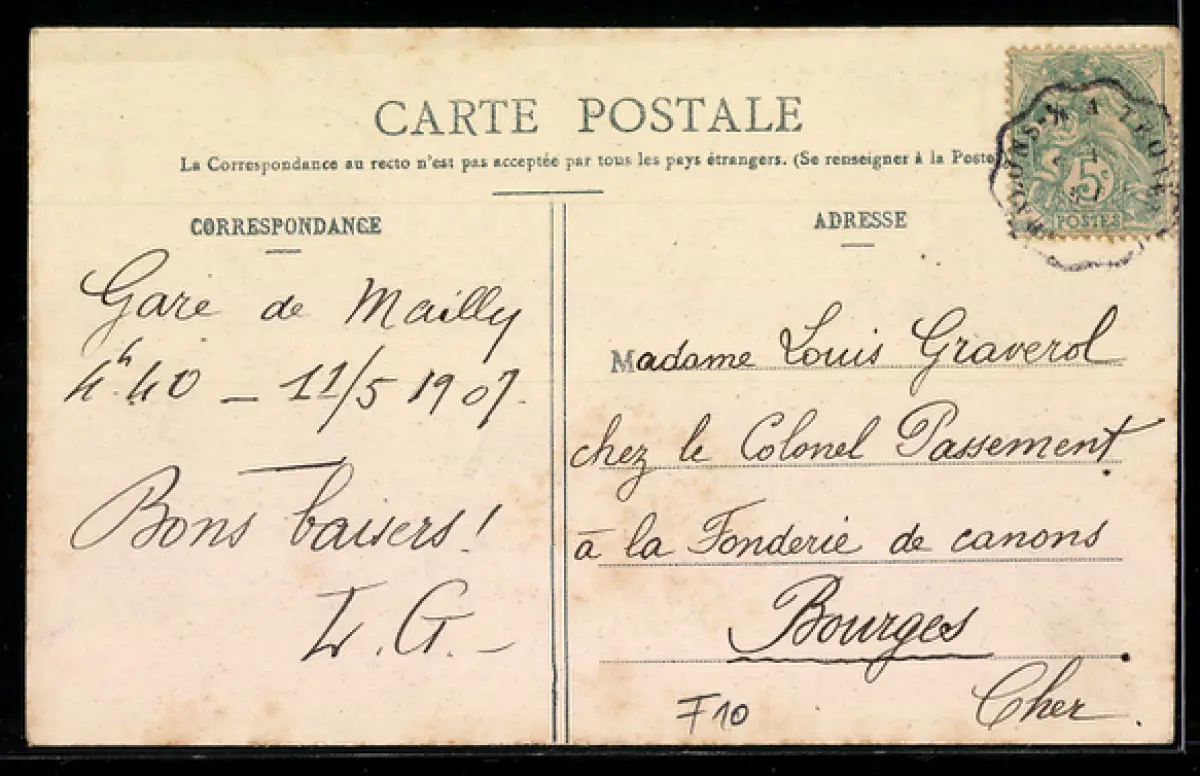 CARTE POSTALE
La Correspondance au recto n'est pas acceptée par tous les pays étrangers. (Se renseigner à la Poste
CORRESPONDANCE
Gare de Mailly
4h.40 — 11/5 1907.
Bons baisers!
L. G. —
ADRESSE
5c
POSTES
Madame Louis Graverol
chez le Colonel Passement
à la Fonderie de canons
Bourges
Cher.
F10